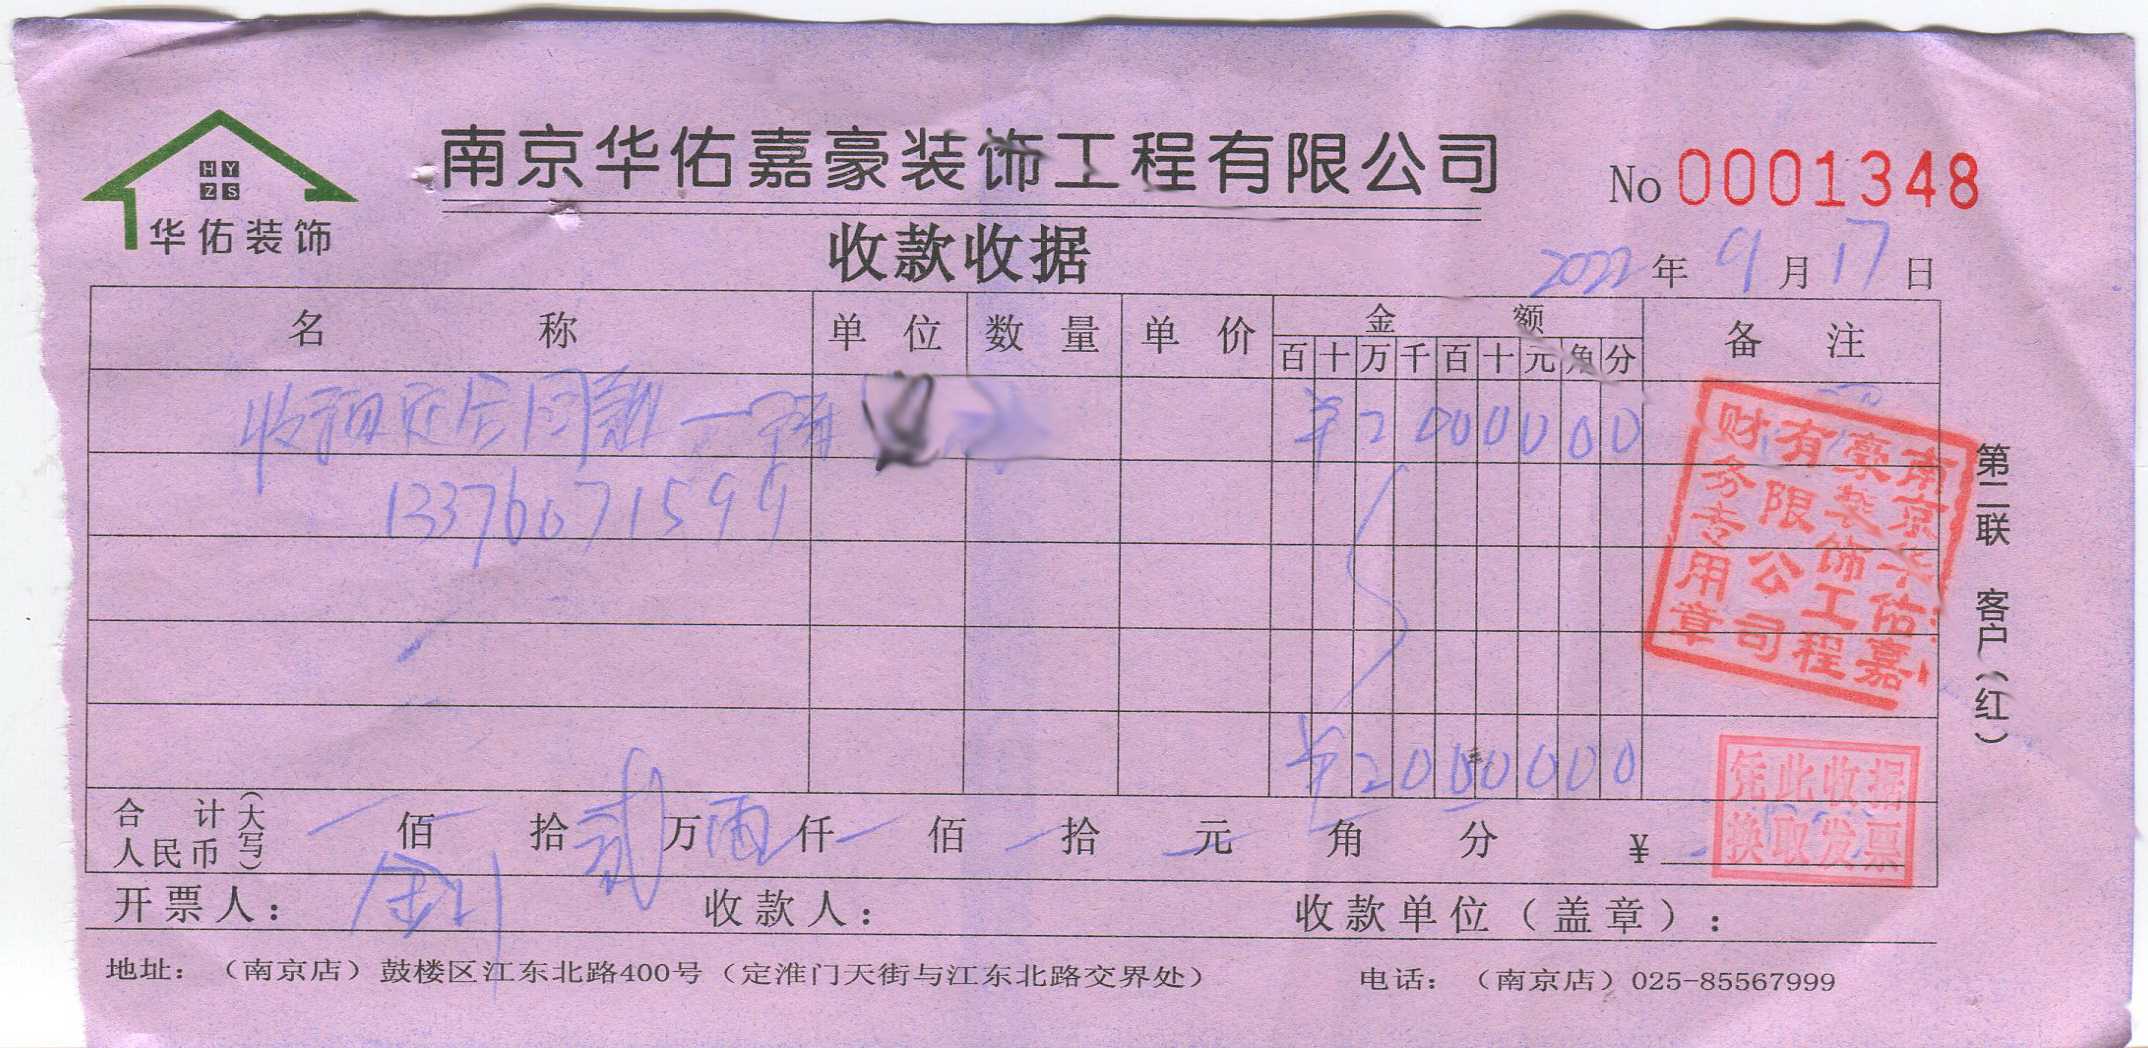 HY
ZS
华佑装饰
南京华佑嘉豪装饰工程有限公司
No 0001348
收款收据
2022年9月17日
名称 单位 数量 单价 金额 备注
百十万千百十元角分
¥2000000
13376071599
¥2000000
合计人民币(大写) 佰 拾 贰万 仟 佰 拾 元 角 分 ¥
开票人: 收款人: 收款单位(盖章):
地址:(南京店)鼓楼区江东北路400号(定淮门天街与江东北路交界处) 电话:(南京店)025-85567999
第二联 客户(红)
南京华佑嘉豪装饰工程有限公司财务专用章
凭此收据
换取发票